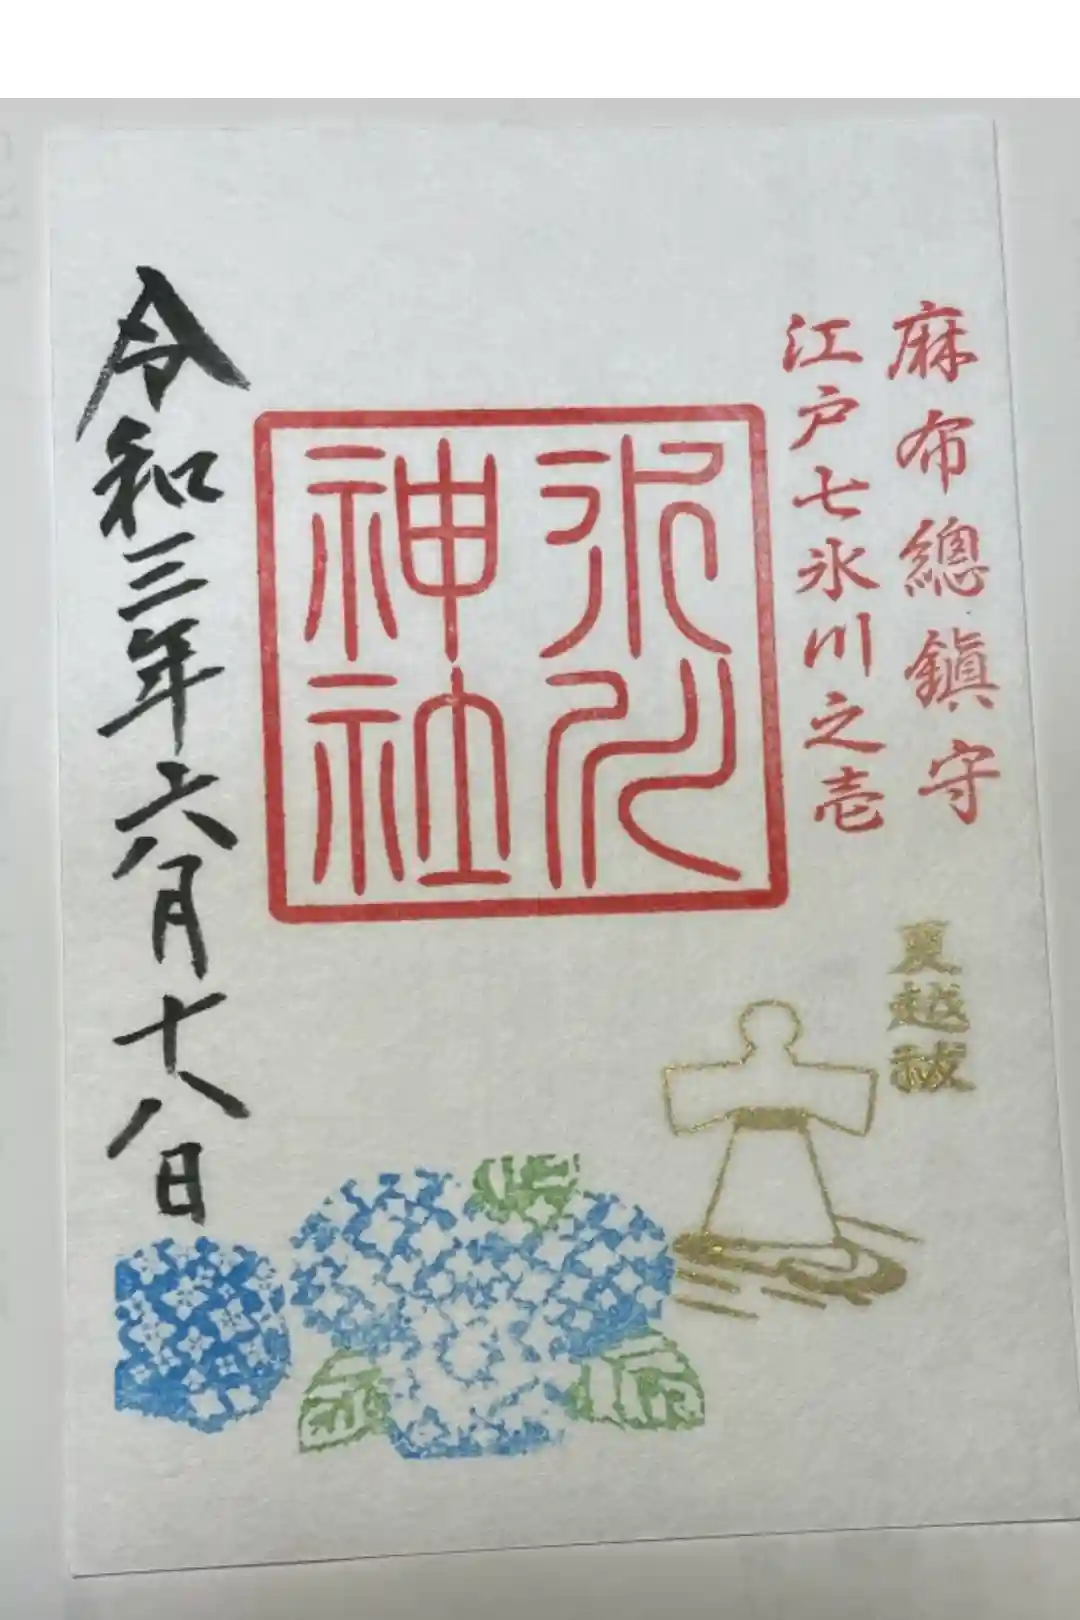 麻布總鎭守
江戸七氷川之壱
氷川
神社
夏越祓
令和三年六月十八日